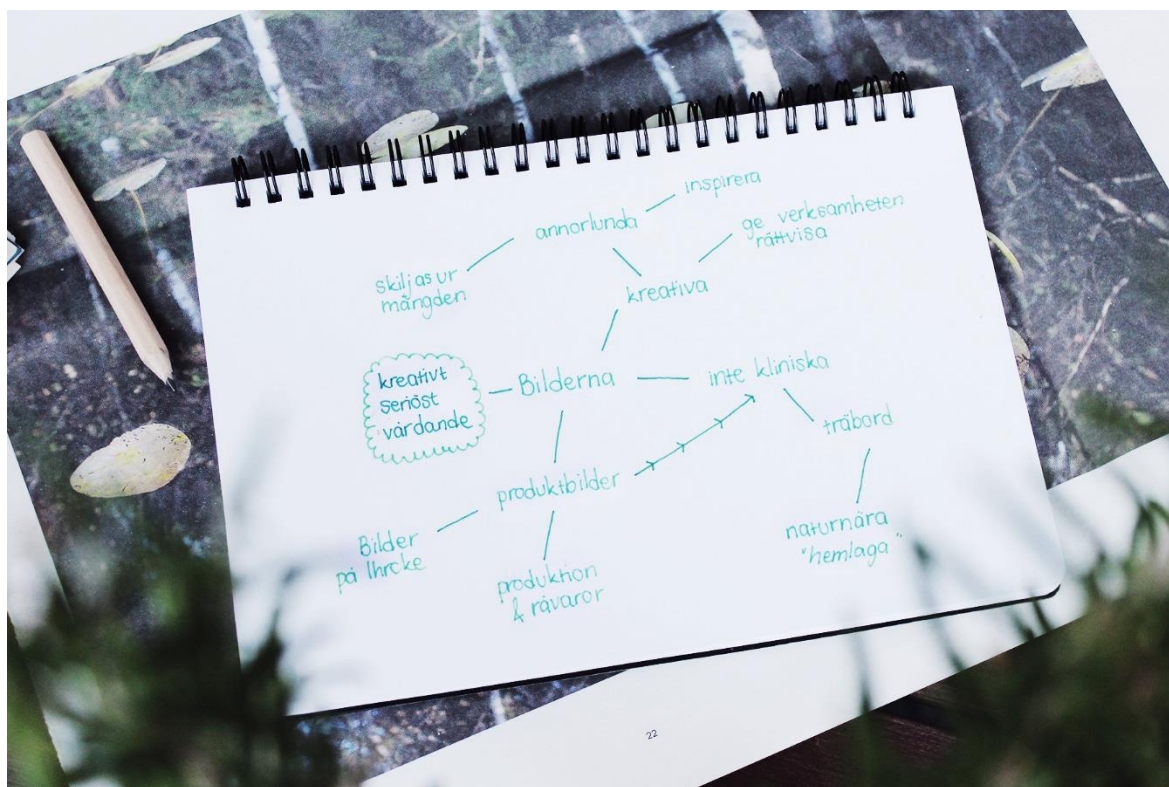 inspirera
annorlunda
ge verksamheten
rättvisa
skiljas ur
mängden
kreativa
kreativt
seriöst
vårdande
Bilderna
inte kliniska
träbord
produktbilder
Bilder
på Ihrcke
naturnära
"hemlaga"
produktion
& råvaror
22